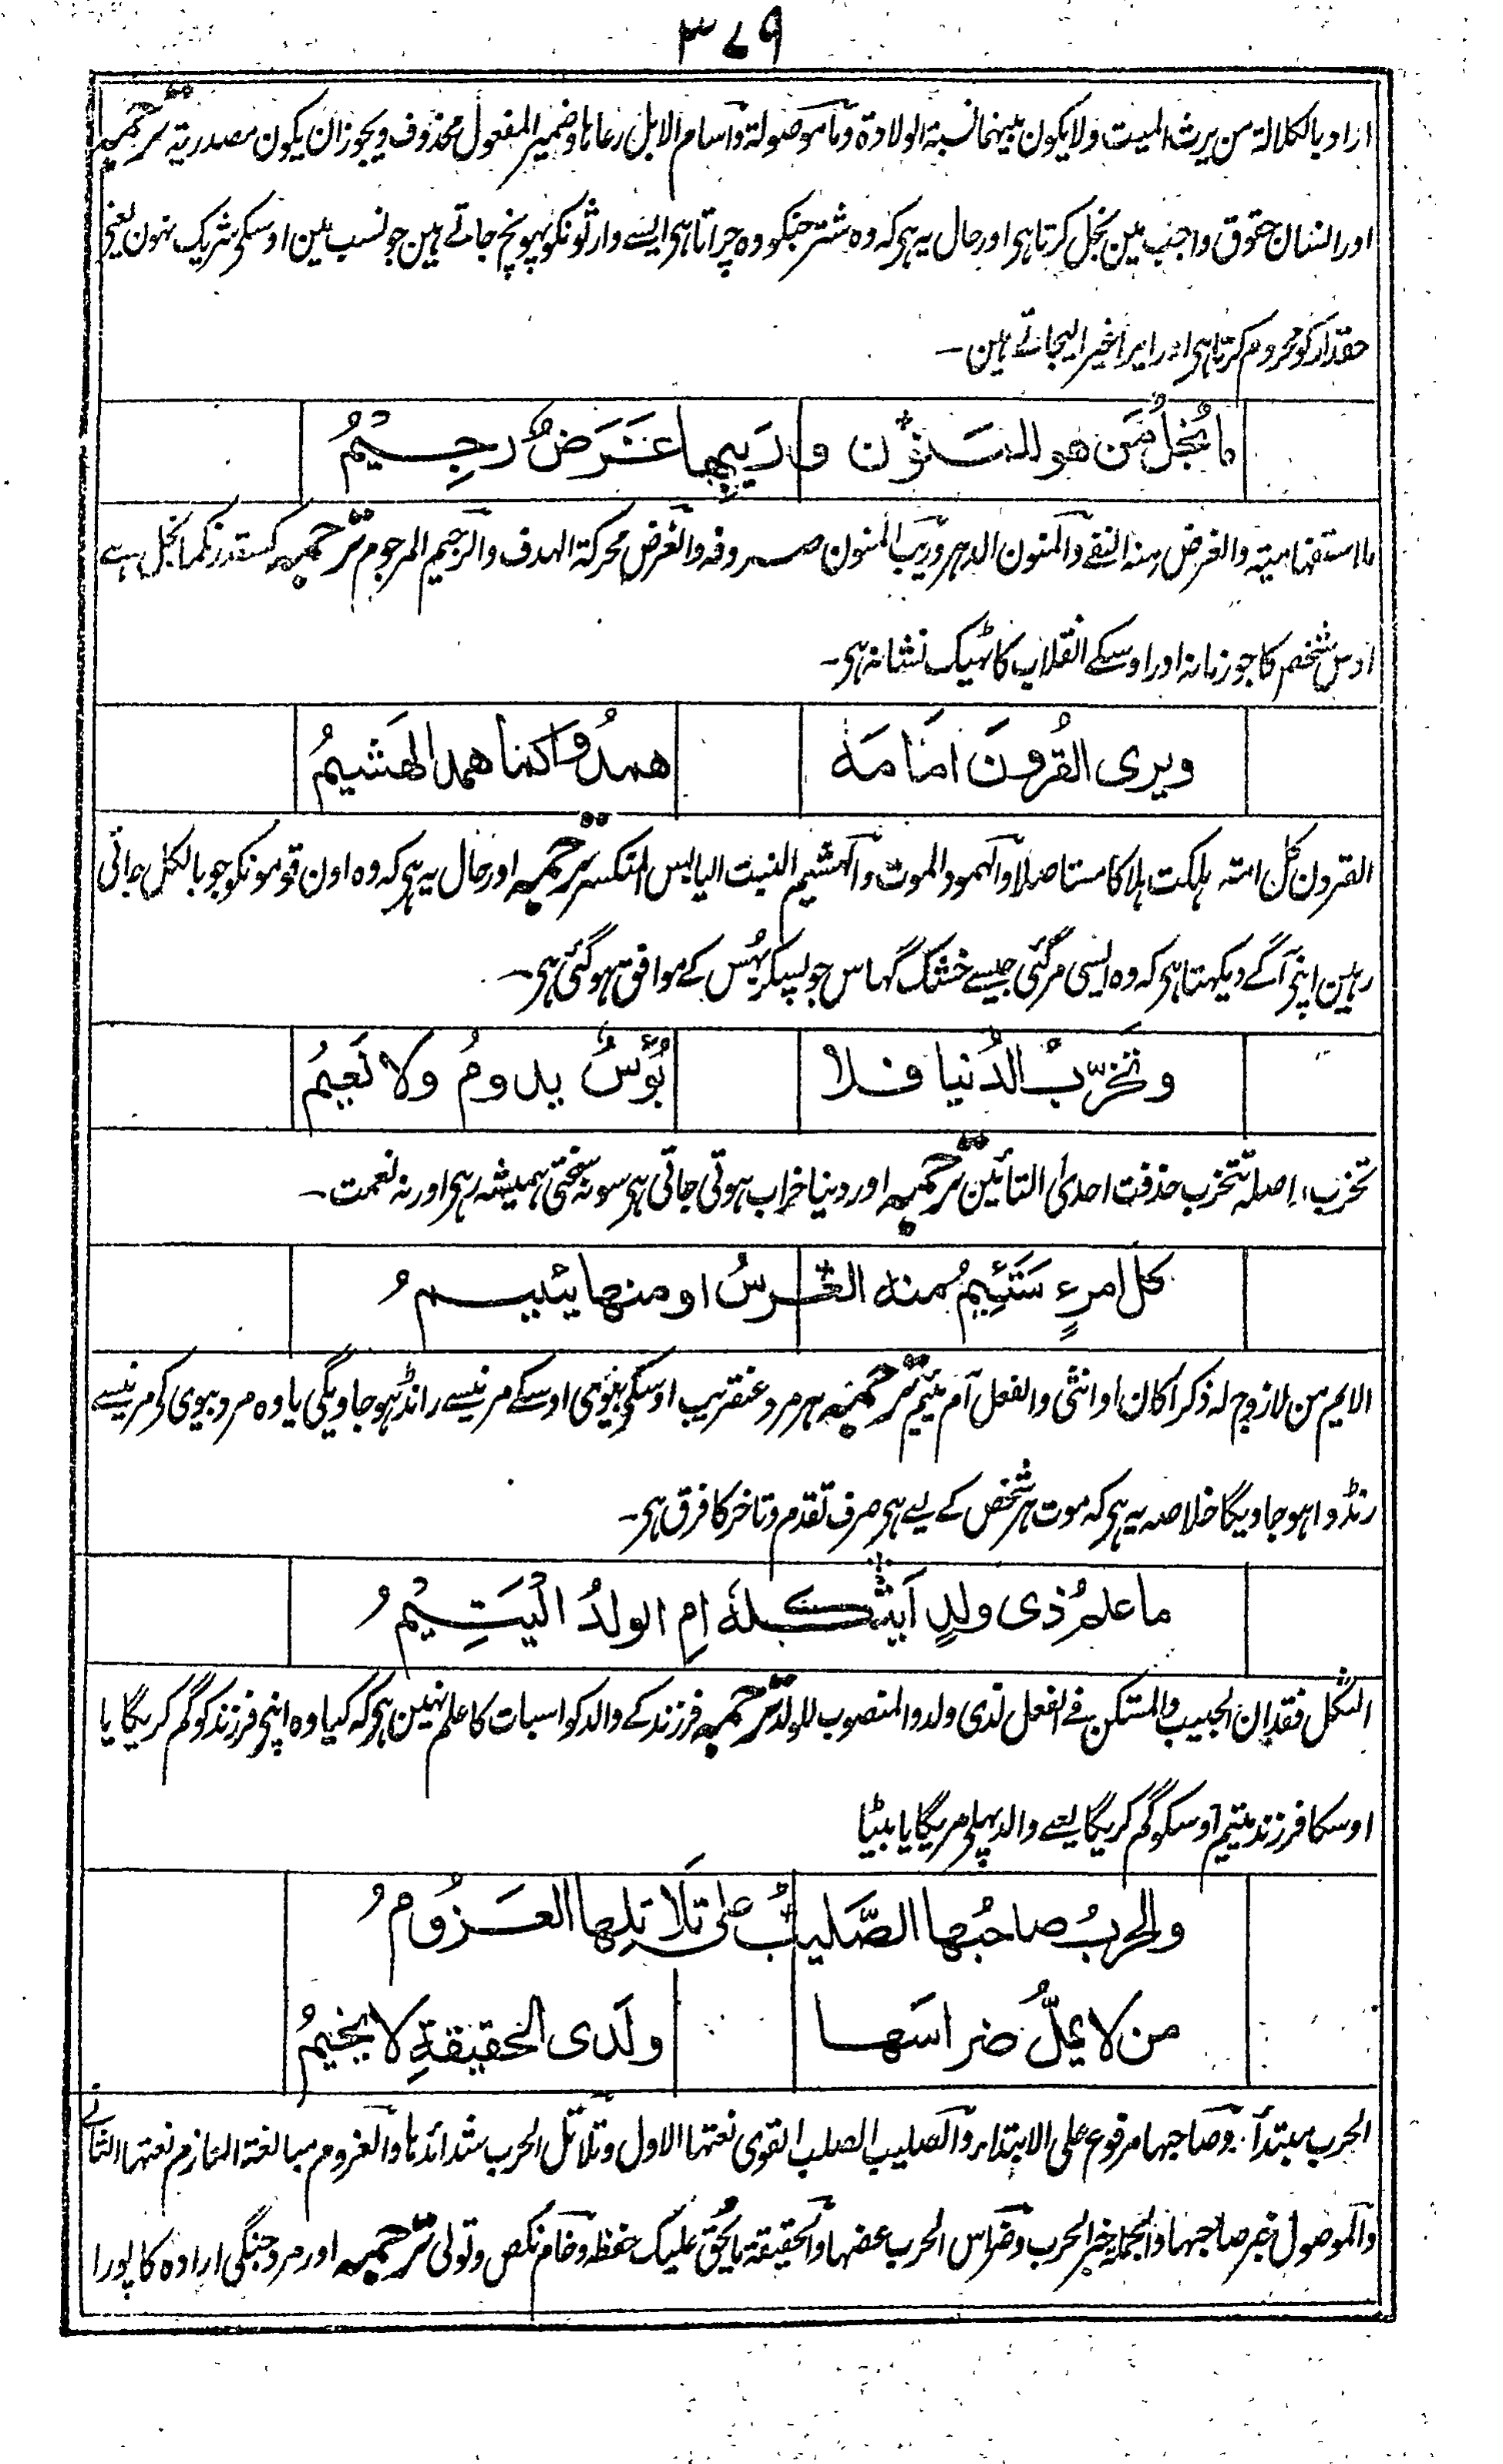 ۳۷۹
اراد بالکلالة من یرث المیت ولا یکون بینهما نسبة الولادة وما موصولة واسام الابل رعاها وضمیر المفعول محذوف ویجوز ان یکون مصدریة ترجمہ
اور انسان حقوق واجب مین بخل کرتا ہی اور حال یہ ہی کہ وہ شتر جنکو وہ چراتا ہی ایسے وارثونکو پہونچ جاتے ہین جو نسب مین اوسکی شریک نہون یعنی
حقدار کو محروم کرتا ہی اور ایرا غیرا لیجاتے ہین۔
ما بُخلُ مَن هو للمَنوُن وَرَیبِها غَرَضٌ رجِیْمُ
ما استفهامیة والغرض منه النفے والمنون الدهر وریب المنون صروفه والغرض محرکة الهدف والرجیم المرجوم ترجمہ کسقدر نکما بخل ہے
اوس شخص کا جو زمانہ اور اوسکے انقلاب کا ٹھیک نشانہ ہی۔
ویری القُرونَ امَامَہ همدُوا کما همد الهَشیمُ
القرون کل امتہ ہلکت ہلاکا مستاصلا والہمود الموت والہشیم النبت الیابس المتکسر ترجمہ اور حال یہ ہی کہ وہ اون قومونکو جو بالکل جاتی
رہین اپنی آگے دیکھتا ہی کہ وہ ایسی مرگئی جیسے خشک گھاس جو پسکر بھُس کے موافق ہوگئی ہی۔
وتَخَرّبُ الدُنیا فلا بُؤسٌ یدومُ ولا نَعیمُ
تخرب اصلہ تتخرب حذفت احدی التائین ترجمہ اور دنیا خراب ہوتی جاتی ہی سو نہ سختی ہمیشہ رہی اور نہ نعمت۔
کل امرءٍ سَتَئِیمُ منہ العِرسُ او منها یئیمُ
الایم من لا زوج لہ ذکرا کان او انثی والفعل آم یئیم ترجمہ ہر مرد عنقریب اوسکی بیوی اوسکے مرنیسے رانڈ ہوجاویگی یا وہ مرد بیوی کی مرنیسے
رنڈوا ہوجاویگا خلاصہ یہ ہی کہ موت ہر شخص کے لیے ہی صرف تقدم وتاخر کا فرق ہی۔
ما علمُ ذی ولدٍ اَیثکلہ اَمِ الولدُ الیَتِیْمُ
الثکل فقدان الحبیب والمستکن فے الفعل لذی ولد والمنصوب للولد ترجمہ فرزند کے والد کو اسبات کا علم نہین ہی کہ کیا وہ اپنی فرزند کو گم کریگا یا
اوسکا فرزند یتیم اوسکو گم کریگا یعنے والد پہلی مریگا یا بیٹا
والحربُ صاحبُها الصَّلیبُ علی تَلاتِلِها العَزُومُ
من لا یملُّ ضراسَها ولَدی الحقیقةِ لا یخیمُ
الحرب مبتدأ وصاحبها مرفوع علی الابتداء والصلیب الصلب القوی نعتها الاول وتلاتل الحرب شدائدها والعزوم مبالغة العازم نعتها الثانے
والموصول خبر صاحبها والجملة خبر الحرب وضراس الحرب عضها والحقیقة ما یحق علیک حفظه وخام نکص وتولی ترجمہ اور مرد جنگی ارادہ کا پورا